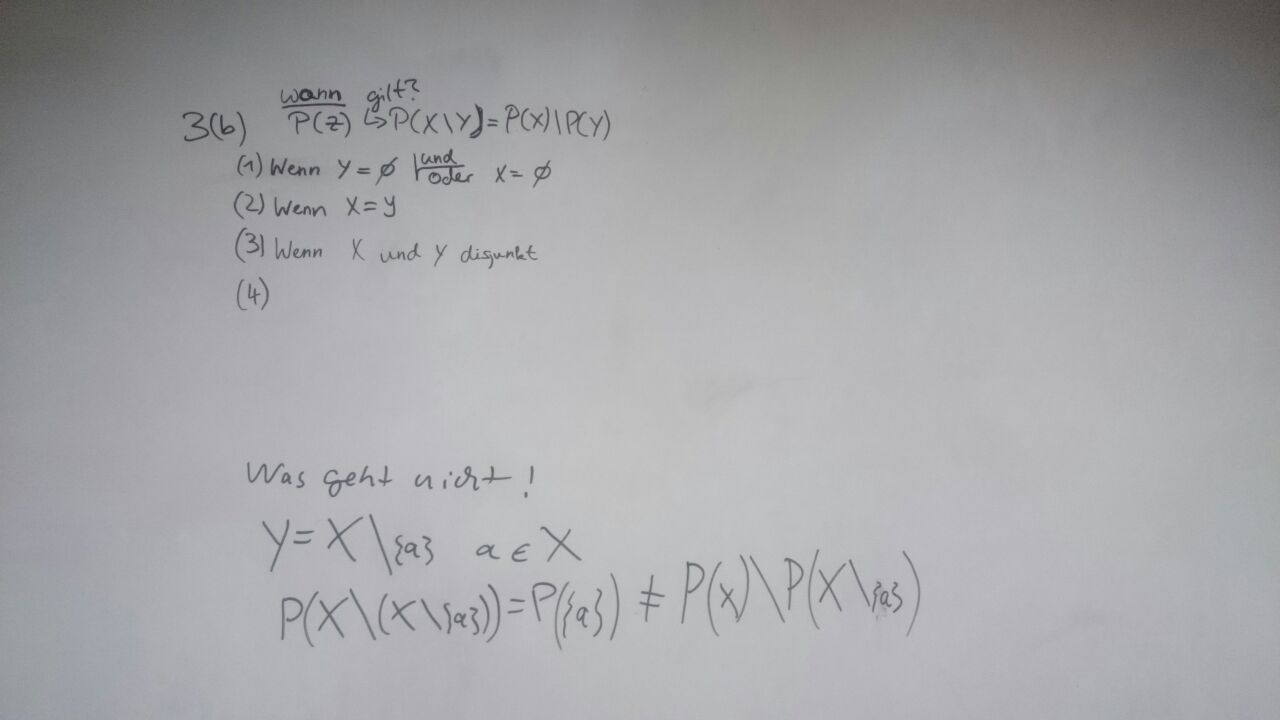 wann gilt?
3(b) P(z) ↳ P(X\Y) = P(X)\P(Y)
(1) Wenn Y = ∅ und/oder X = ∅
(2) Wenn X = Y
(3) Wenn X und Y disjunkt
(4)
Was geht nicht!
Y = X\{a} a ∈ X
P(X\(X\{a})) = P({a}) ≠ P(X)\P(X\{a})